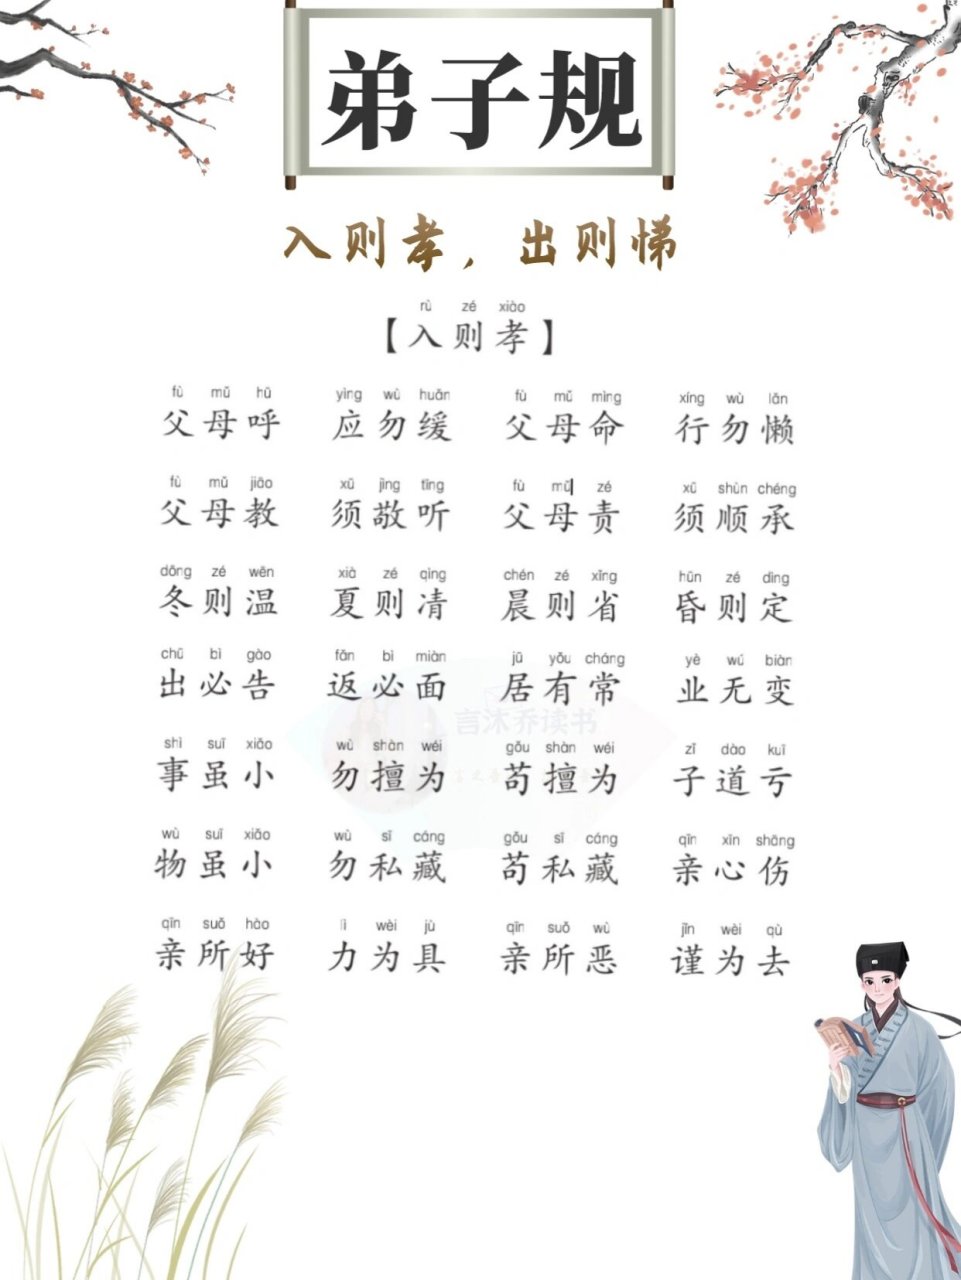 弟子规
入则孝，出则悌
rù zé xiào
【入则孝】
fù mǔ hū yìng wù huǎn fù mǔ mìng xíng wù lǎn
父母呼 应勿缓 父母命 行勿懒
fù mǔ jiāo xū jìng tīng fù mǔ zé xū shùn chéng
父母教 须敬听 父母责 须顺承
dōng zé wēn xià zé qìng chén zé xǐng hūn zé dìng
冬则温 夏则凊 晨则省 昏则定
chū bì gào fǎn bì miàn jū yǒu cháng yè wú biàn
出必告 返必面 居有常 业无变
shì suī xiǎo wù shàn wéi gǒu shàn wéi zǐ dào kuī
事虽小 勿擅为 苟擅为 子道亏
言沐乔读书
wù suī xiǎo wù sī cáng gǒu sī cáng qīn xīn shāng
物虽小 勿私藏 苟私藏 亲心伤
qīn suǒ hào lì wèi jù qīn suǒ wù jǐn wèi qù
亲所好 力为具 亲所恶 谨为去